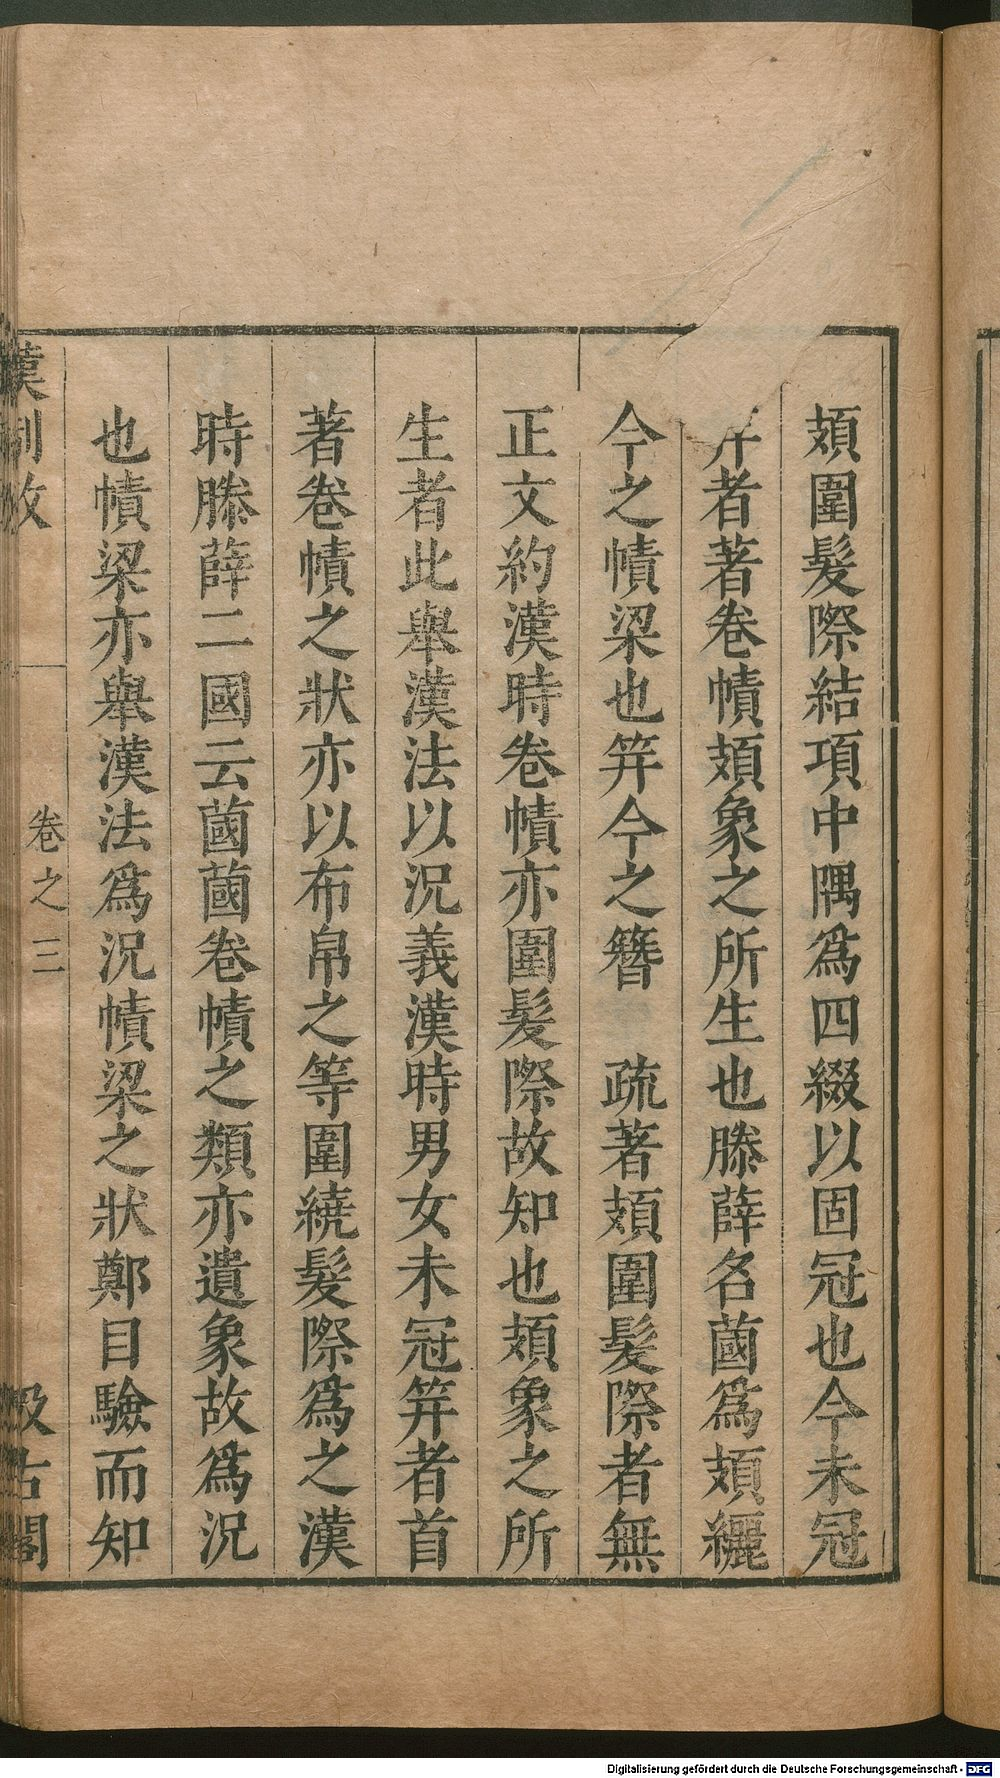 頍圍髮際結項中隅爲四綴以固冠也今未冠
笄者著卷幘頍象之所生也滕薛名蔮爲頍纚
今之幘梁也笄今之簪　疏著頍圍髮際者無
正文約漢時卷幘亦圍髮際故知也頍象之所
生者此舉漢法以況義漢時男女未冠笄者首
著卷幘之狀亦以布帛之等圍繞髮際爲之漢
時滕薛二國云蔮蔮卷幘之類亦遺象故爲況
也幘梁亦舉漢法爲況幘梁之狀鄭目驗而知
漢制攷　卷之三　汲古閣
Digitalisierung gefördert durch die Deutsche Forschungsgemeinschaft - DFG